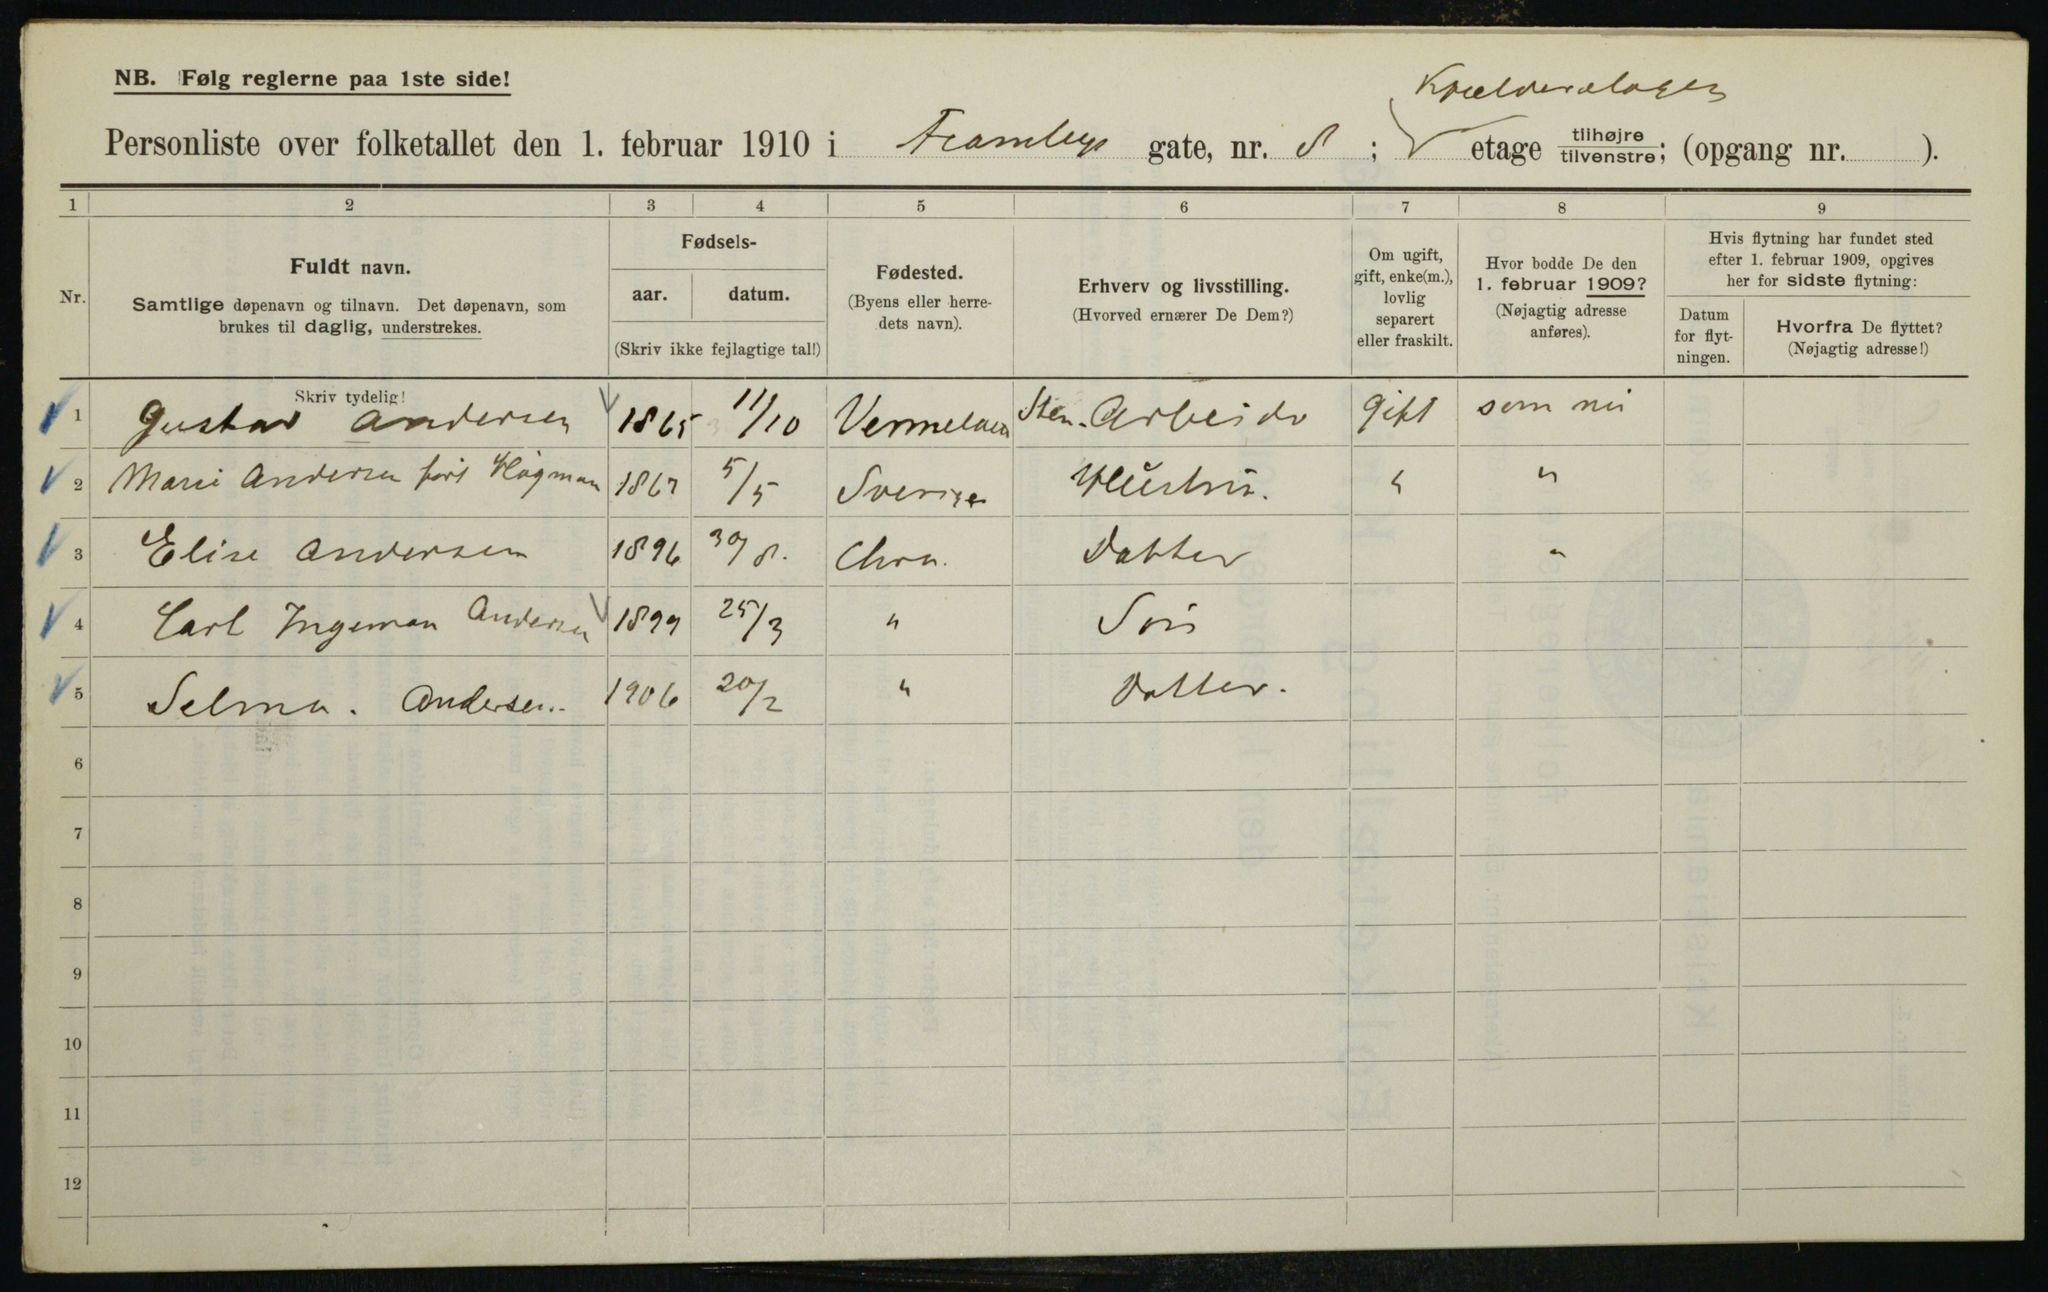 NB. Følg reglerne paa 1ste side!
Kjælderetagen
Personliste over folketallet den 1. februar 1910 i Framnesgs gate, nr. 8 ; etage tilhøjre tilvenstre; (opgang nr. ).
1 2 3 4 5 6 7 8 9
Nr.
Fuldt navn.
Samtlige døpenavn og tilnavn. Det døpenavn, som
brukes til daglig, understrekes.
Fødsels-
aar. datum.
(Skriv ikke fejlagtige tal!)
Fødested.
(Byens eller herre-
dets navn).
Erhverv og livsstilling.
(Hvorved ernærer De Dem?)
Om ugift,
gift, enke(m.),
lovlig
separert
eller fraskilt.
Hvor bodde De den
1. februar 1909?
(Nøjagtig adresse
anføres).
Hvis flytning har fundet sted
efter 1. februar 1909, opgives
her for sidste flytning:
Datum
for flyt-
ningen.
Hvorfra De flyttet?
(Nøjagtig adresse!)
Skriv tydelig!
1 Gustav Andersen 1865 11/10 Vermeland Sten. Arbeider gift som nu
2 Marie Andersen født Högman 1867 5/5 Sverige Hustru. " "
3 Elise Andersen 1896 30/8. Chra. Datter "
4 Carl Ingeman Andersen 1899 25/3 " Søn
5 Selma. Andersen. 1906 20/2 " Datter.
6
7
8
9
10
11
12